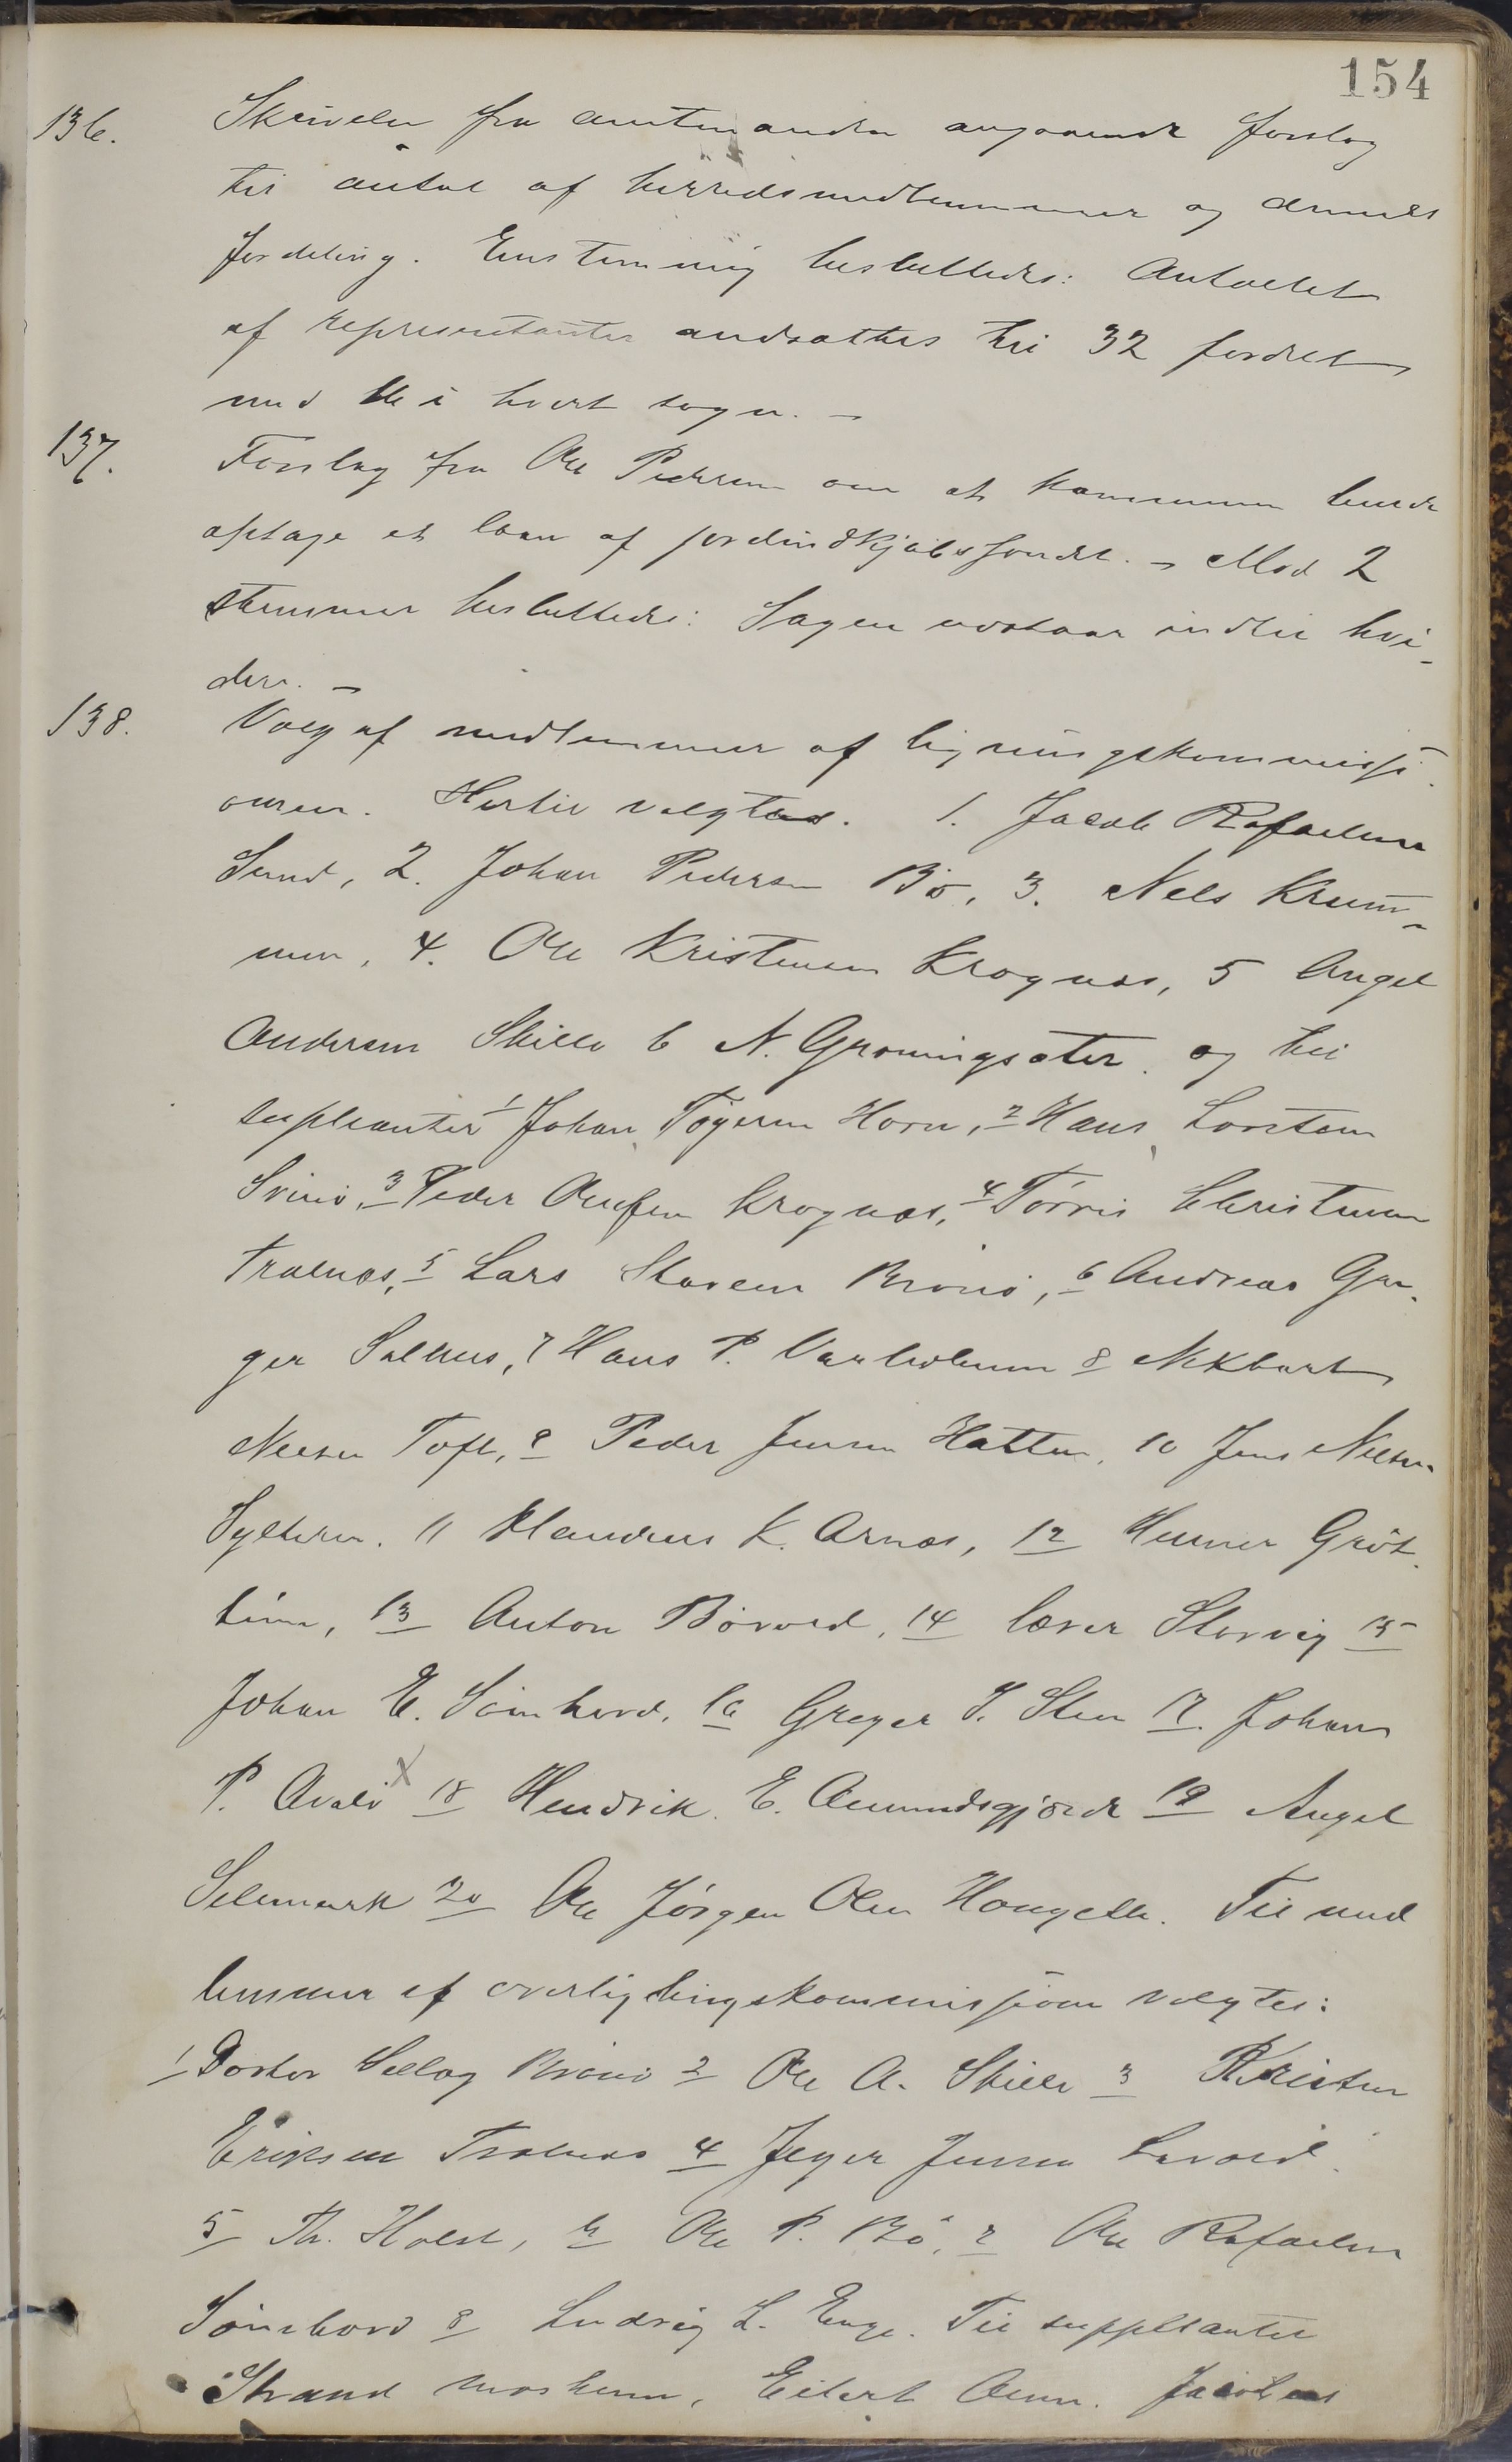 154
136. Skrivelse fra amtmanden angaaende forslag
til antal af herredsmedlemmer og dennes
fordeling. Enstemmig besluttedes: Antallet
af repræsentanter andsættes til 32 fordelt
med 16 i hvert sogn. –
137. Forslag fra Ole Pedersen om at kommunen burde
optage et laan af jordindkjøbsfondet. – Mod 2
stemmer besluttedes: Sagen udstaar indtil vi-
dere. –
138. Valg af medlemmer af ligningskommissi-
onen. Hertil valgtes. 1. Jacob Rafaelsen
Sund, 2. Johan Pedersen Bø, 3. Nels Krum-
men, 4. Ole Kristensen Krognæs, 5 Angel
Andersen Skille 6 N. Grøningsæter og til
supleanter 1 Johan Tøgersen Horn, 2 Hans Lorntsen
Svinø, 3 Peder Olufsen Krognæs, 4 Torris Christensen
Trælnæs, 5 Lars Brønø, 6 Andreas Grø-
ger Salhus, 7 Hans P. 8 Mekbart
Nielsen Toft, 9 Peder Jensen Hatten, 10 Jens Nielsen
Sylteren. 11 Klaudius K. Arnæs, 12 Grøt
heim, 13 Anton Børvold, 14 lærer Storvig 15
Johan E. Sømhovd, 16 Greger J. Sten 17. Johan
P. 18 Hendrik E. Aamundsgjorde 19 Angel
Selemark 20 Ole Jørgen Olsen Hongseth. Til med
lemmer af overligningskommissionen valgtes:
1 Doktor Selleg Brønø 2 Ole A. Skille 3 Kristen
Eriksen Trælnæs 4 Jeger Jensen
5 Th. Holst, 6 Ole P. Bø, 7 Ole Rafaelsen
Sømhovd 8 Ludvig L. Enge. Til suppleanter
Strand Eilert Jacob